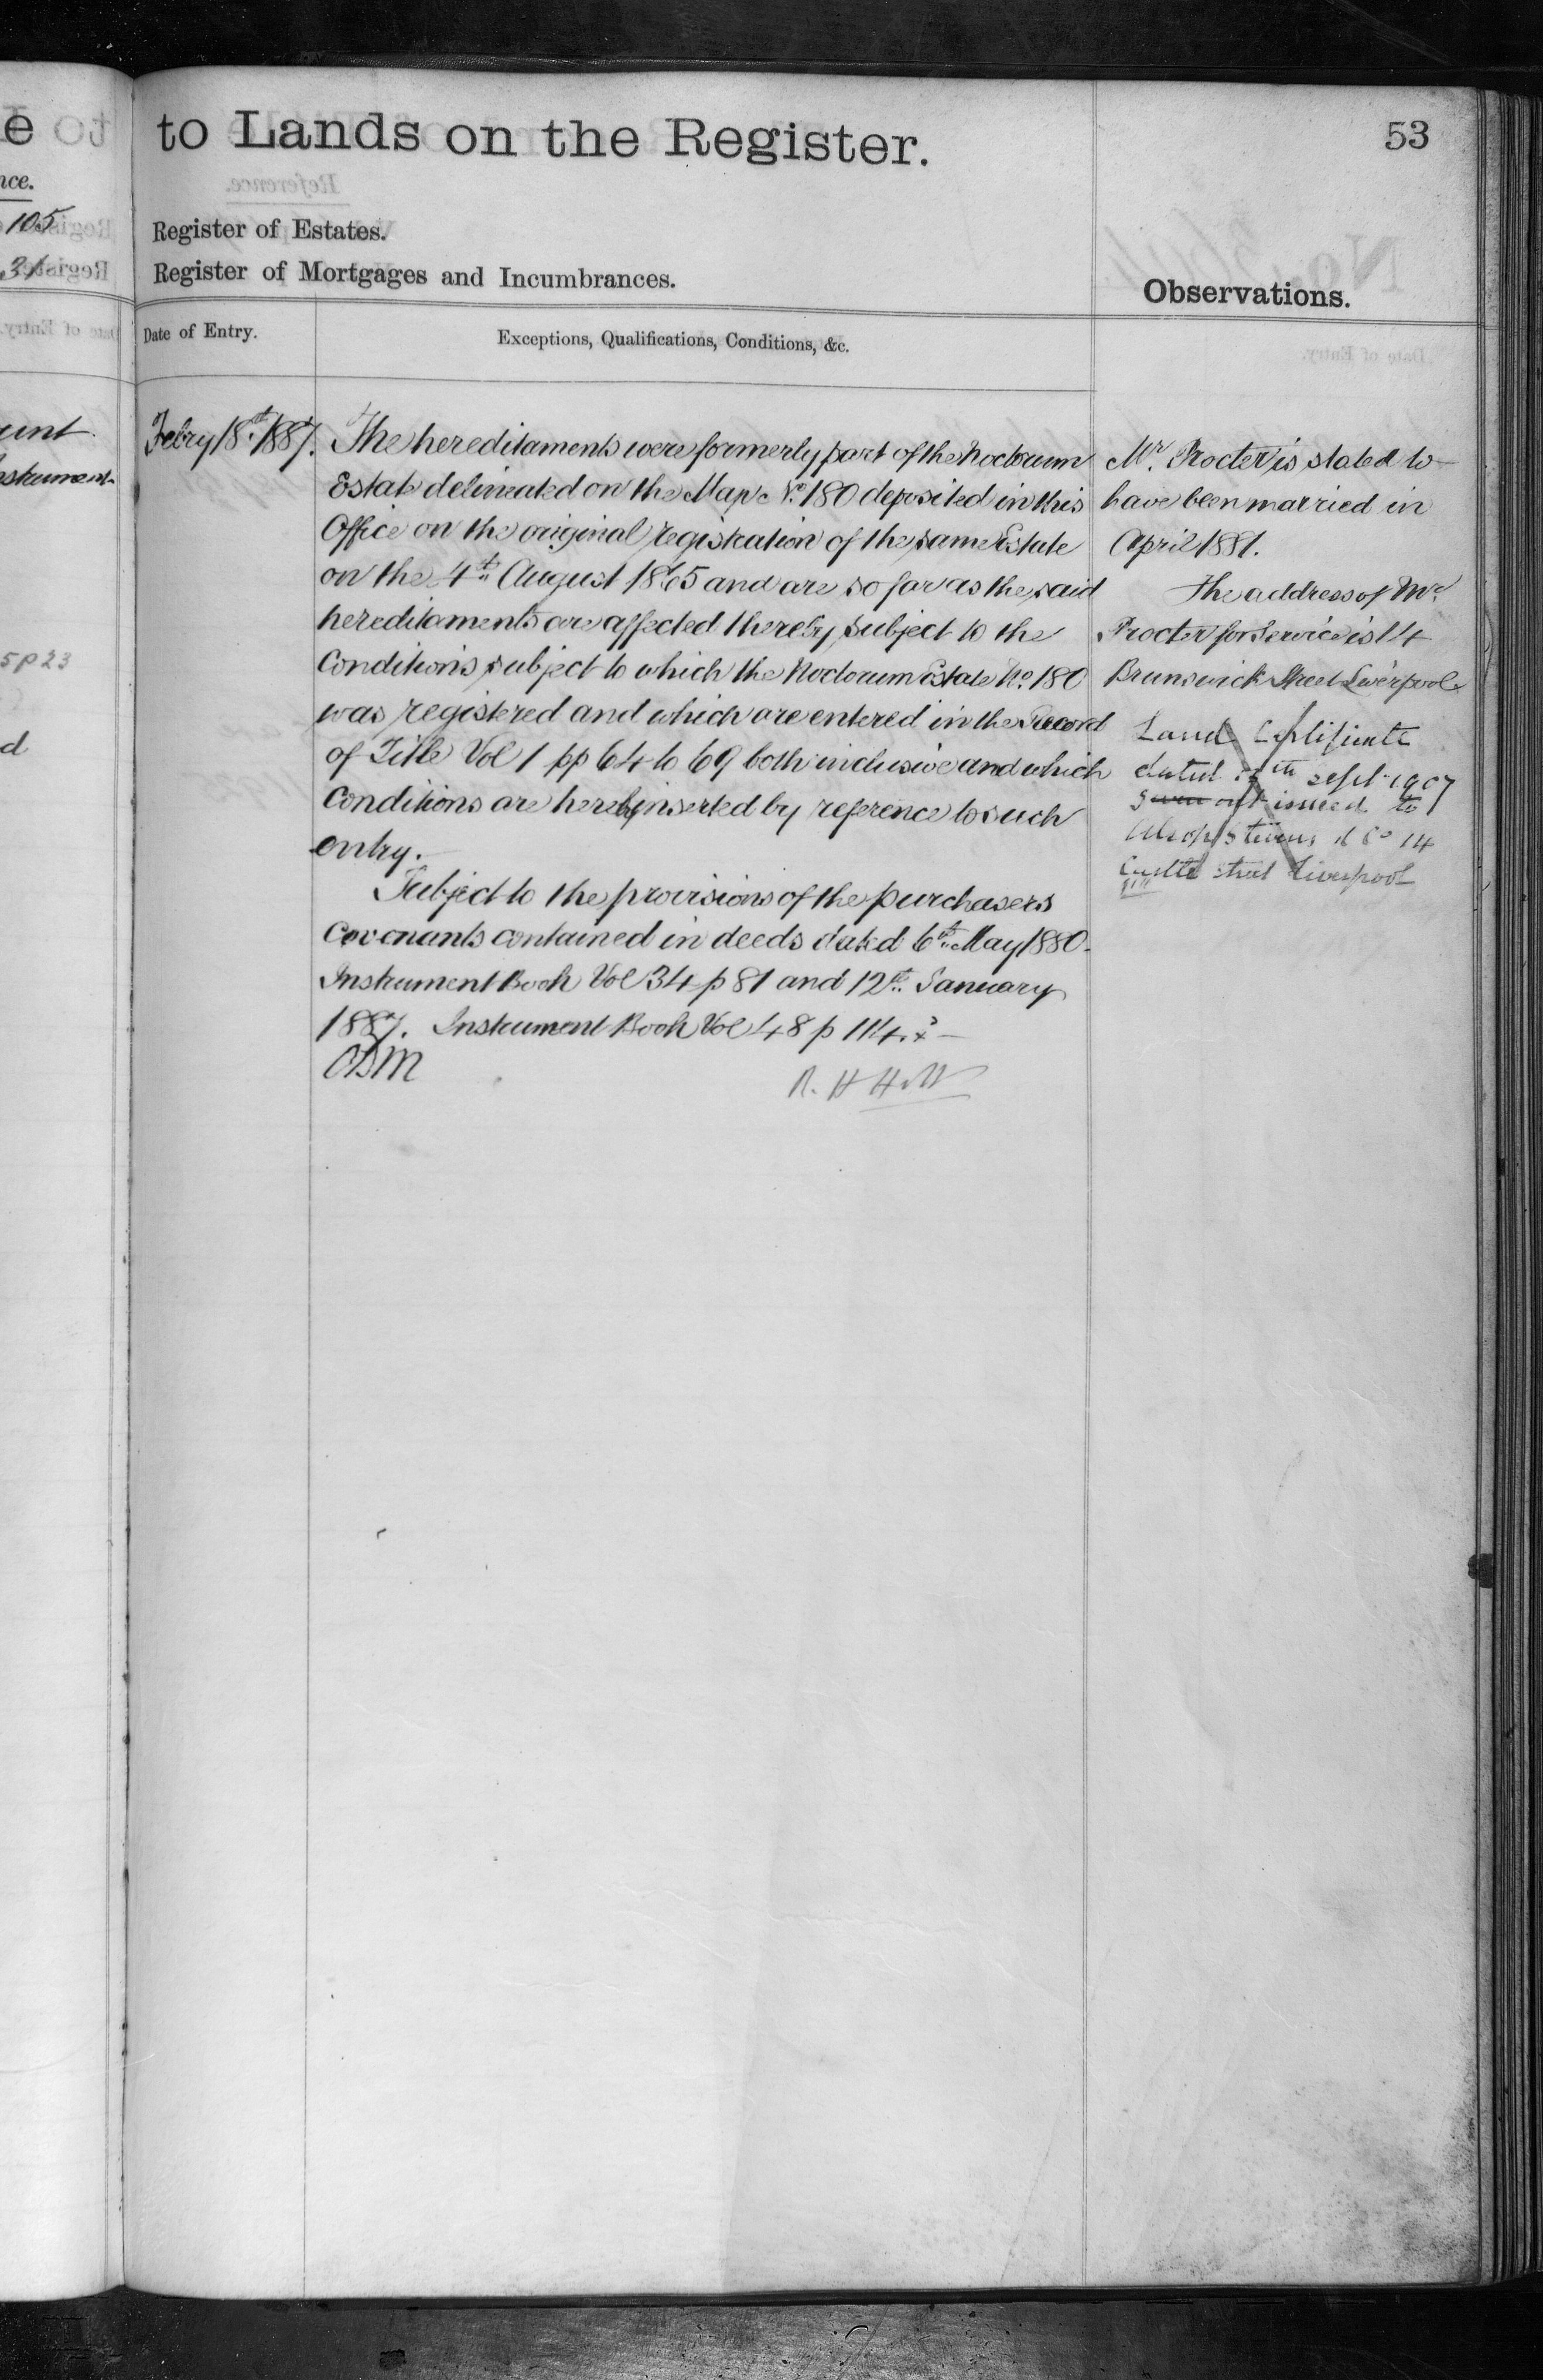 e
to Lands on the Register.
53
nce.
105
31
Register of Estates.
Register of Mortgages and Incumbrances.
Observations.
Date of Entry.
Exceptions, Qualifications, Conditions, &c.
Instrument
5 p 23
d
Febry 18th 1887.
The hereditaments were formerly part of the Noctorum
Estate delineated on the Map No. 180 deposited in this
Office on the original registration of the same Estate
on the 4th August 1865 and are so far as the said
hereditaments are affected thereby subject to the
Conditions subject to which the Noctorum Estate No. 180
was registered and which are entered in the Record
of Title Vol 1 pp 64 to 69 both inclusive and which
Conditions are hereby inserted by reference to such
entry.
Subject to the provisions of the purchasers
Covenants contained in deeds dated 6th May 1880
Instrument Book Vol 34 p 81 and 12th January
1887. Instrument Book Vol 48 p 114.
R. H Holt
Mr. Procter is stated to
have been married in
April 1881.
The address of Mr.
Procter for Service is 14
Brunswick Street Liverpool
Land Certificate
dated th Sept 1907
given out issued to
Alsop Stevens & Co 14
Castle street Liverpool